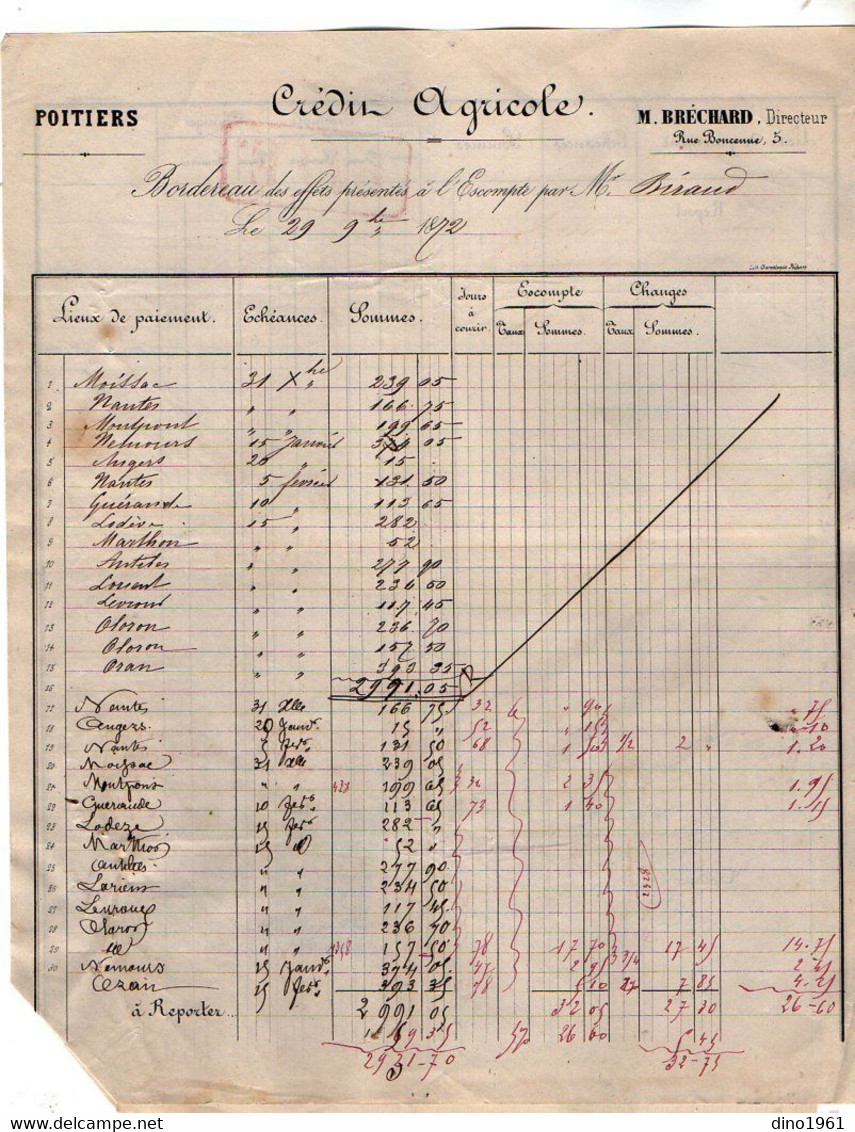 POITIERS
Crédit Agricole.
M. BRÉCHARD, Directeur
Rue Boncenne, 5.
Bordereau des effets présentés à l'Escompte par Mr Biraud
Le 29 9bre 1872
Lieux de paiement. Echéances. Sommes. Jours à courir. Escompte Changes
Taux Sommes. Taux Sommes.
1 Moissac 31 Xbre 239 05
2 Nantes " " 166 75
3 Montpont " " 199 65
4 Nemours 15 Janvier 374 05
5 Angers 20 " 15 .
6 Nantes 5 février 131 50
7 Guérande 10 " 113 65
8 Lodève 15 " 282
9 Marthon " " 52
10 Antibes " " 277 90
11 Lorient " " 234 50
12 Levroux " " 117 45
13 Oloron " " 236 70
14 Oloron " " 157 50
15 Oran " " 393 35
16 2991.05
17 Nantes 31 Xbre 166 75 32 6 " 90 " 75
18 Angers 20 Janvr 15 " 52 " 15 " 10
19 Nantes 5 fevr 131 50 68 1 50 1/2 2 " 1.20
20 Moissac 31 Xbre 239 05
21 Montpons " " 438 199 65 32 2 35 1.95
22 Guerande 10 fevr 113 65 73 1 40 1.15
23 Lodeze 15 fevr 282 "
24 Marthon 15 d 52 "
25 Antibes " " 277 90
26 Lorient " " 234 50
27 Levroux " " 117 45
28 Oloron " " 236 70
29 " " 1358 157 50 78 17 70 17 45 14.75
30 Nemours 15 Janvr 374 05 47 2 95 3 3/4
Oran 15 fevr 393 35 78 5 10 7 85 4.25
à Reporter... 2 991 05 32 05 27 30 26-60
69 35 26 60 5 45
2921-70 32-75
dino1961